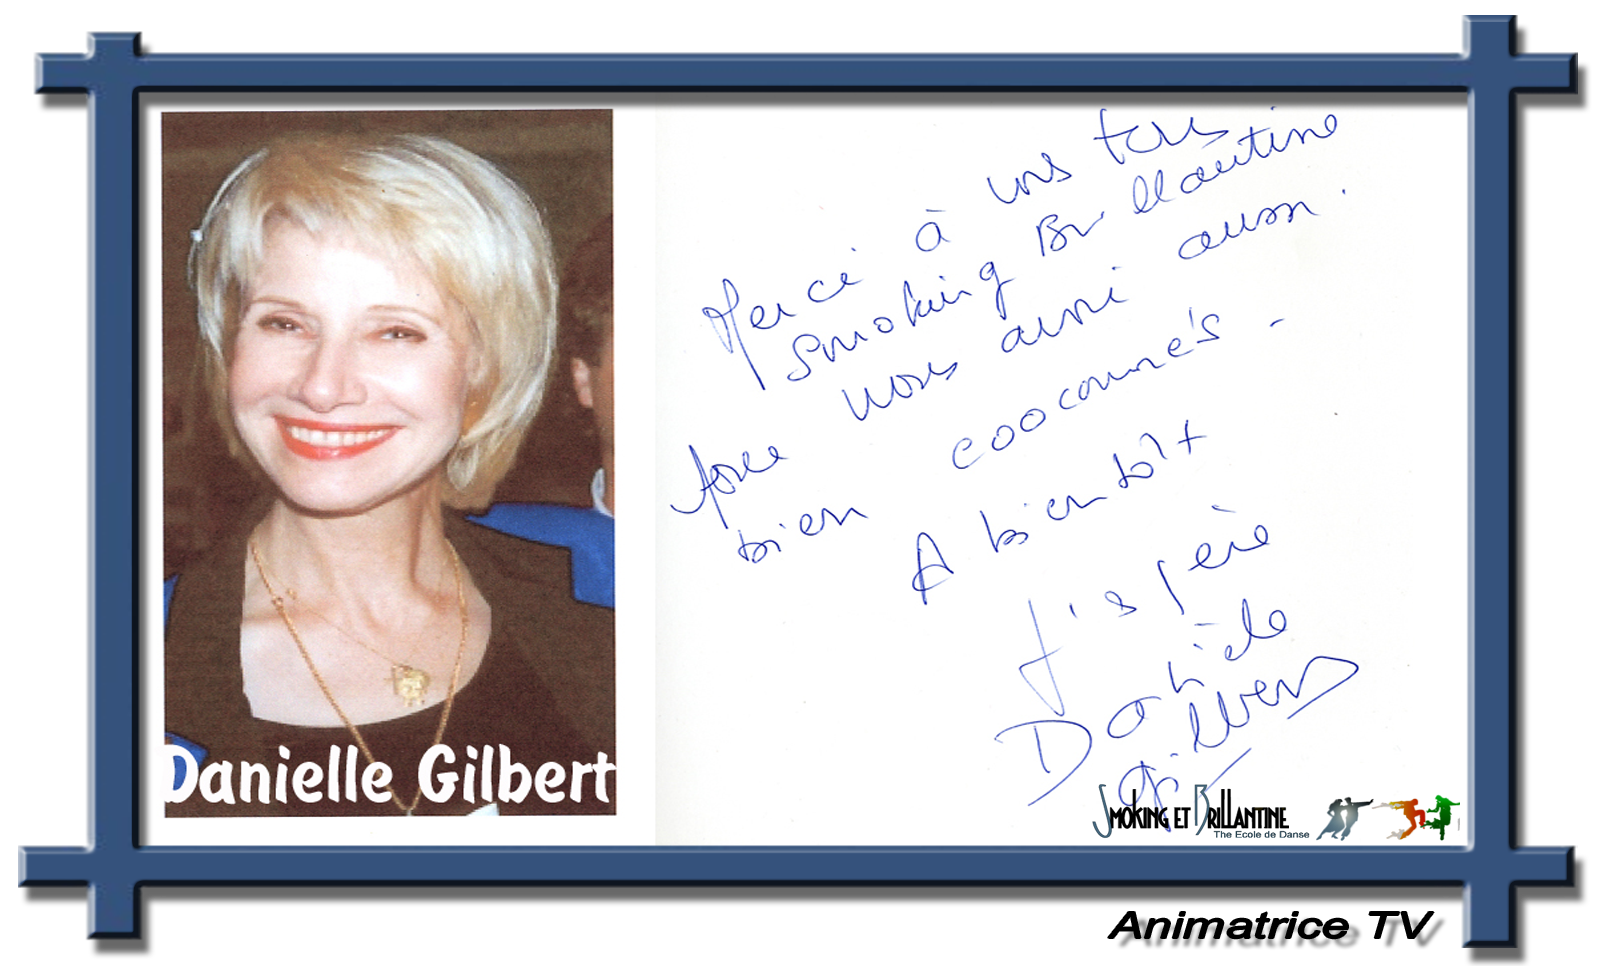 Danielle Gilbert
Merci à vous tous
Smoking Brillantine
vous aussi aussi.
bien
A bientôt
J'espère
Danièle
Gilbert
SMOKING ET BRILLANTINE
The Ecole de Danse
Animatrice TV